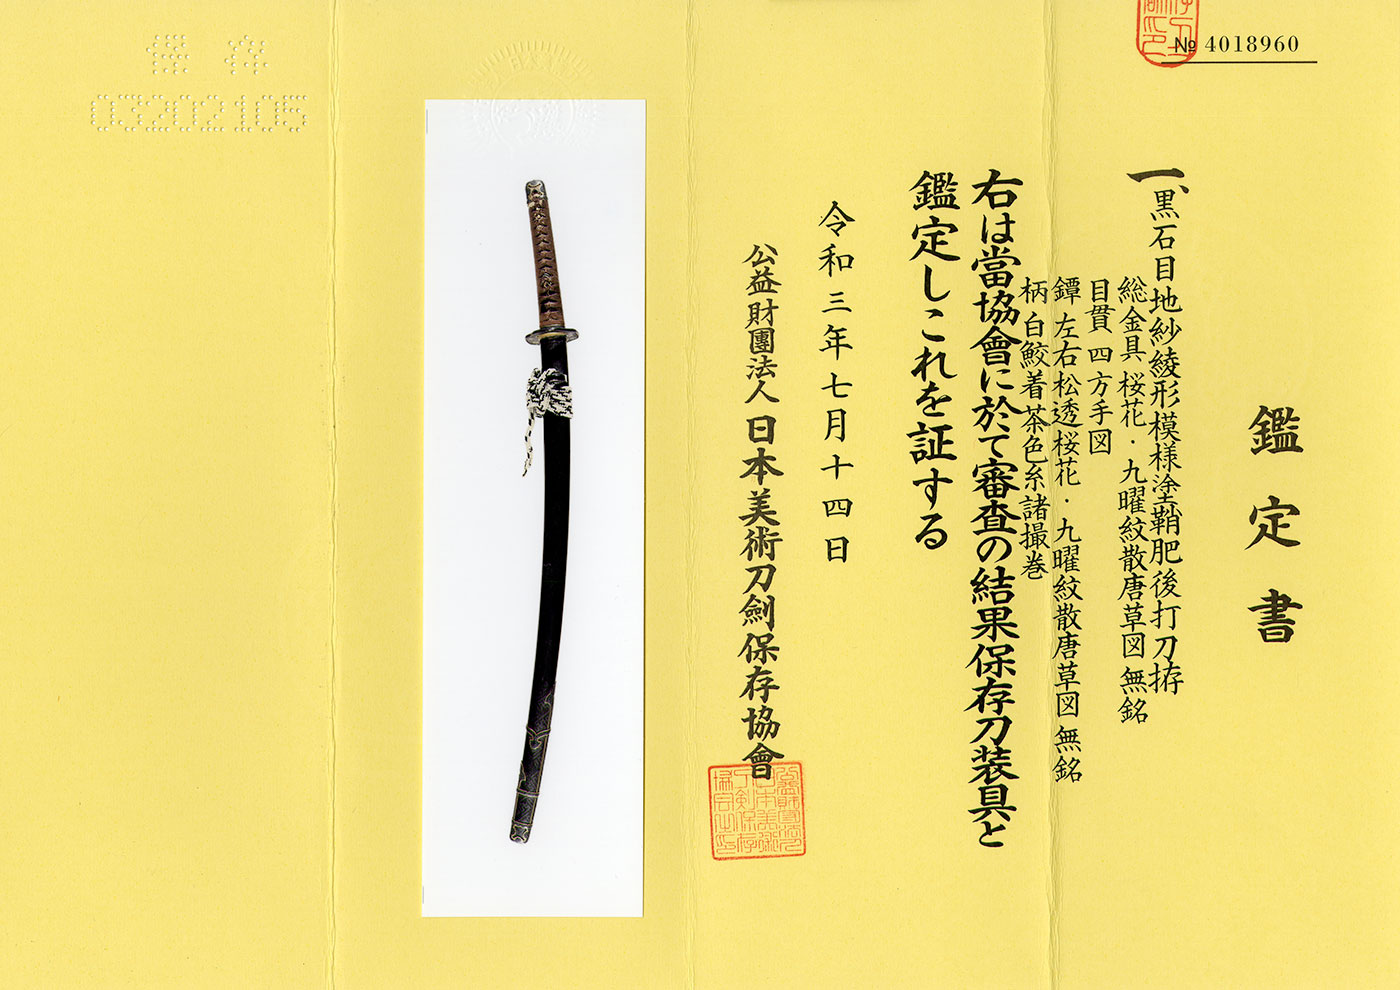 № 4018960
鑑定書
一、黒石目地紗綾形模様塗鞘肥後打刀拵
総金具 桜花・九曜紋散唐草図 無銘
目貫 四方手図
鐔 左右松透桜花・九曜紋散唐草図 無銘
柄 白鮫着茶色糸諸撮巻
右は當協會に於て審査の結果保存刀装具と
鑑定しこれを証する
令和三年七月十四日
公益財團法人 日本美術刀劍保存協會
保存
03202105